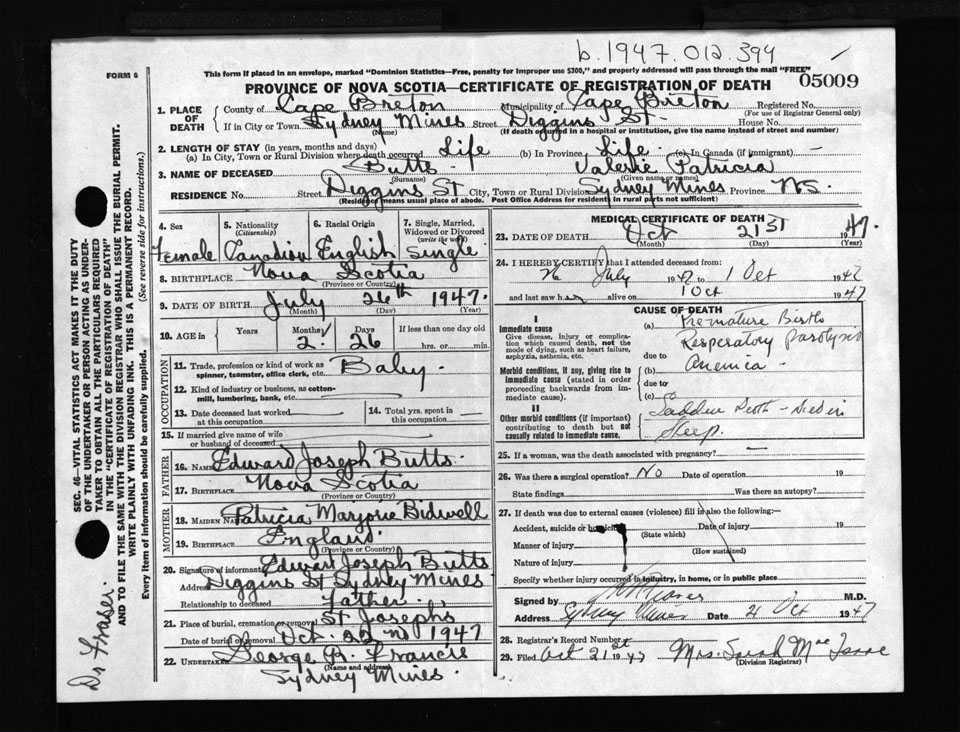 b.1947.012.394
FORM 6
This form if placed in an envelope, marked "Dominion Statistics—Free, penalty for improper use $300," and properly addressed will pass through the mail "FREE"
PROVINCE OF NOVA SCOTIA—CERTIFICATE OF REGISTRATION OF DEATH
05009
1. PLACE OF DEATH
County of Cape Breton Municipality of Cape Breton Registered No.
(For use of Registrar General only)
If in City or Town Sydney Mines Street Diggins St. House No.
(Name) (If death occurred in a hospital or institution, give the name instead of street and number)
2. LENGTH OF STAY (in years, months and days)
(a) In City, Town or Rural Division where death occurred Life (b) In Province Life (c) In Canada (if immigrant) —
3. NAME OF DECEASED Butts Valerie Patricia
(Surname) (Given name or names)
RESIDENCE No. Street Diggins St City, Town or Rural Division Sydney Mines Province N.S.
(Residence means usual place of abode. Post Office Address for residence in rural parts not sufficient)
4. Sex 5. Nationality (Citizenship) 6. Racial Origin 7. Single, Married, Widowed or Divorced (write the word)
Female Canadian English Single
8. BIRTHPLACE Nova Scotia
(Province or Country)
9. DATE OF BIRTH July 26th 1947.
(Month) (Day) (Year)
10. AGE in Years Months Days If less than one day old
2 26 hrs. or min.
OCCUPATION
11. Trade, profession or kind of work as spinner, teamster, office clerk, etc. Baby.
12. Kind of industry or business, as cotton-mill, lumbering, bank, etc.
13. Date deceased last worked at this occupation 14. Total yrs. spent in this occupation
15. If married give name of wife or husband of deceased
FATHER
16. Name Edward Joseph Butts.
17. Birthplace Nova Scotia
(Province or Country)
MOTHER
18. Maiden Name Patricia Marjorie Bidwell
19. Birthplace England
(Province or Country)
20. Signature of informant Edward Joseph Butts
Address Diggins St Sydney Mines
Relationship to deceased Father.
21. Place of burial, cremation or removal St Josephs
Date of burial or removal Oct. 22nd 1947
22. Undertaker George R. Francis
(Name and address)
Sydney Mines.
MEDICAL CERTIFICATE OF DEATH
23. DATE OF DEATH Oct 21st 1947.
(Month) (Day) (Year)
24. I HEREBY CERTIFY that I attended deceased from:
26 July 1947 to 1 Oct 1947
and last saw her alive on 1 Oct 1947
CAUSE OF DEATH
I
Immediate cause
Give disease, injury or complication which caused death, not the mode of dying, such as heart failure, asphyxia, asthenia, etc.
(a) Premature Birth
Respiratory Paralysis
due to
Morbid conditions, if any, giving rise to immediate cause (stated in order proceeding backwards from immediate cause).
(b) Anemia
due to
(c)
II
Other morbid conditions (if important) contributing to death but not causally related to immediate cause.
Sudden Death – Died in
Sleep.
25. If a woman, was the death associated with pregnancy? —
26. Was there a surgical operation? No Date of operation 19
State findings Was there an autopsy?
27. If death was due to external causes (violence) fill in also the following:—
Accident, suicide or homicide Date of injury 19
(State which)
Manner of injury
(How sustained)
Nature of injury
Specify whether injury occurred in industry, in home, or in public place
Signed by M.D.
Address Sydney Mines Date 21 Oct 1947
28. Registrar's Record Number
29. Filed Oct 21st 1947 Mrs. Sarah MacIsaac
(Division Registrar)
SEC. 46—VITAL STATISTICS ACT MAKES IT THE DUTY
OF THE UNDERTAKER OR PERSON ACTING AS UNDER-
TAKER TO OBTAIN ALL THE PARTICULARS REQUIRED
IN THE "CERTIFICATE OF REGISTRATION OF DEATH"
AND TO FILE THE SAME WITH THE DIVISION REGISTRAR WHO SHALL ISSUE THE BURIAL PERMIT.
WRITE PLAINLY WITH UNFADING INK. THIS IS A PERMANENT RECORD.
Every item of information should be carefully supplied. (See reverse side for instructions.)
Dr Fraser.